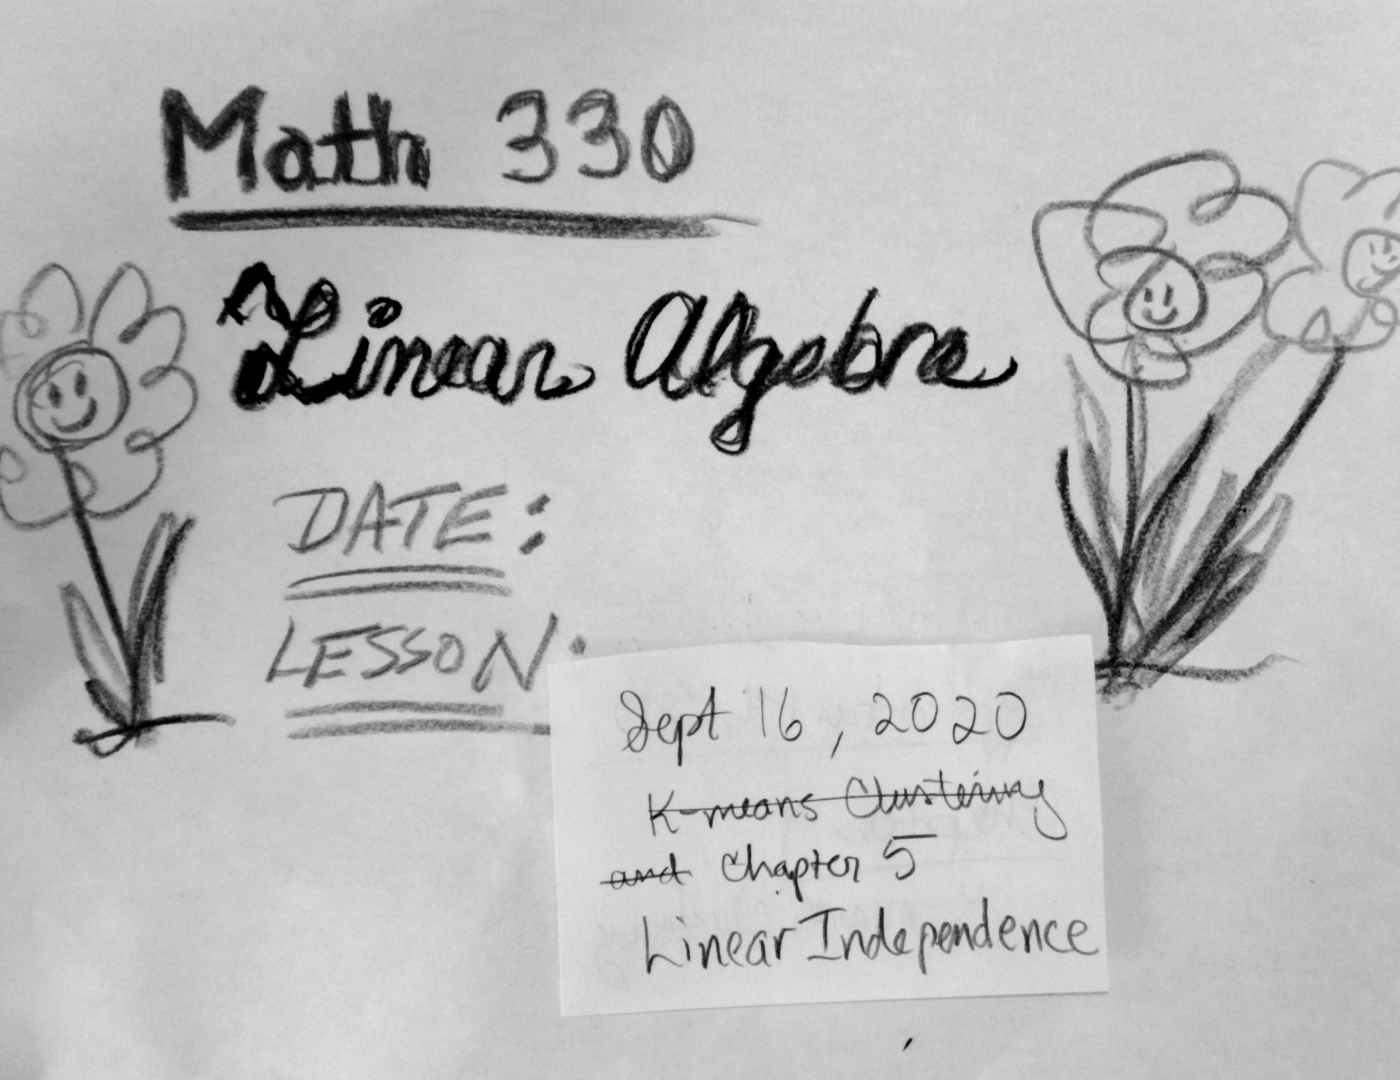 Math 330
Linear Algebra
DATE:
LESSON:
Sept 16, 2020
K-means Clustering
and Chapter 5
Linear Independence